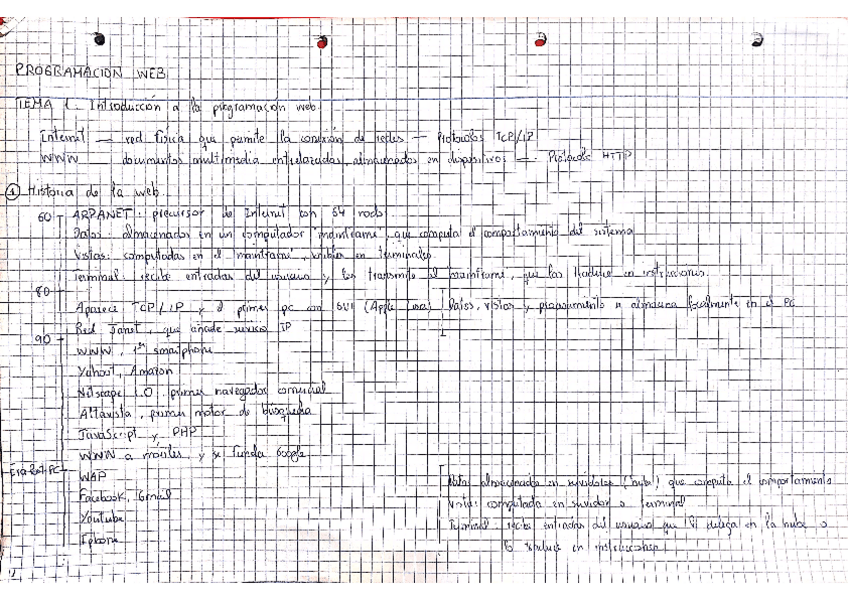 PROGRAMACION WEB
TEMA 1. Introducción a la programación web.
Internet — red física que permite la conexión de redes — Protocolos TCP/IP
WWW — documentos multimedia entrelazados, almacenados en dispositivos — Protocolo HTTP
1 Historia de la web.
60 ARPANET: precursor de Internet con 64 nodos
Datos: almacenados en un computador "mainframe", que computa el comportamiento del sistema
Vistas: computadas en el "mainframe", visibles en terminales.
Terminal: recibe entradas del usuario y los transmite al mainframe, que las traduce en instrucciones.
80
Aparece TCP/IP y el primer pc con GUI (Apple Lisa) Datos, vistas y procesamiento se almacena localmente en el PC
Red Janet, que añade servicio IP
90
WWW, 1er smartphone
Yahoo!, Amazon
Netscape 1.0, primer navegador comercial
Altavista, primer motor de búsqueda
JavaScript y PHP
WWW a móviles, y se funda Google
Era Post-PC
WAP
Facebook, Gmail
Youtube
Iphone
Datos: almacenados en servidores (nube) que computa el comportamiento
Vistas: computada en servidor o terminal
Terminal: recibe entradas del usuario que delega en la nube o
traduce en instrucciones